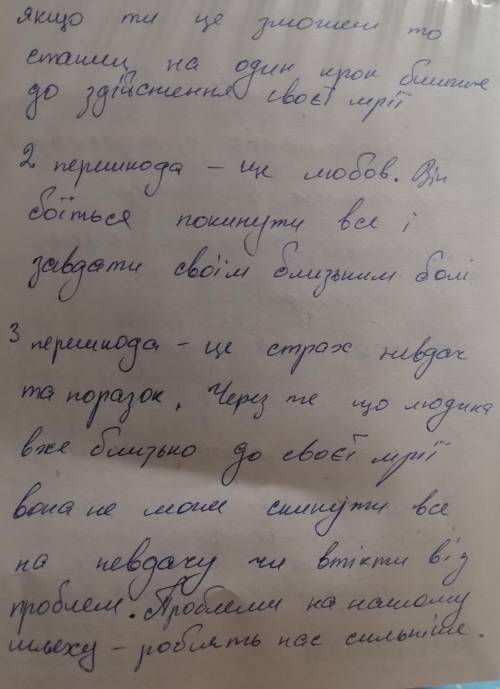 якщо ти це зможеш то
станеш на один крок ближче
до здійснення своєї мрії
2 перешкода – це любов. Він
боїться покинути все і
завдати своїм близьким болі
3 перешкода – це страх невдач
та поразок. Через те що людина
вже близько до своєї мрії
вона не може скинути все
на невдачу чи втікти від
проблем. Проблеми на нашому
шляху – роблять нас сильніше.